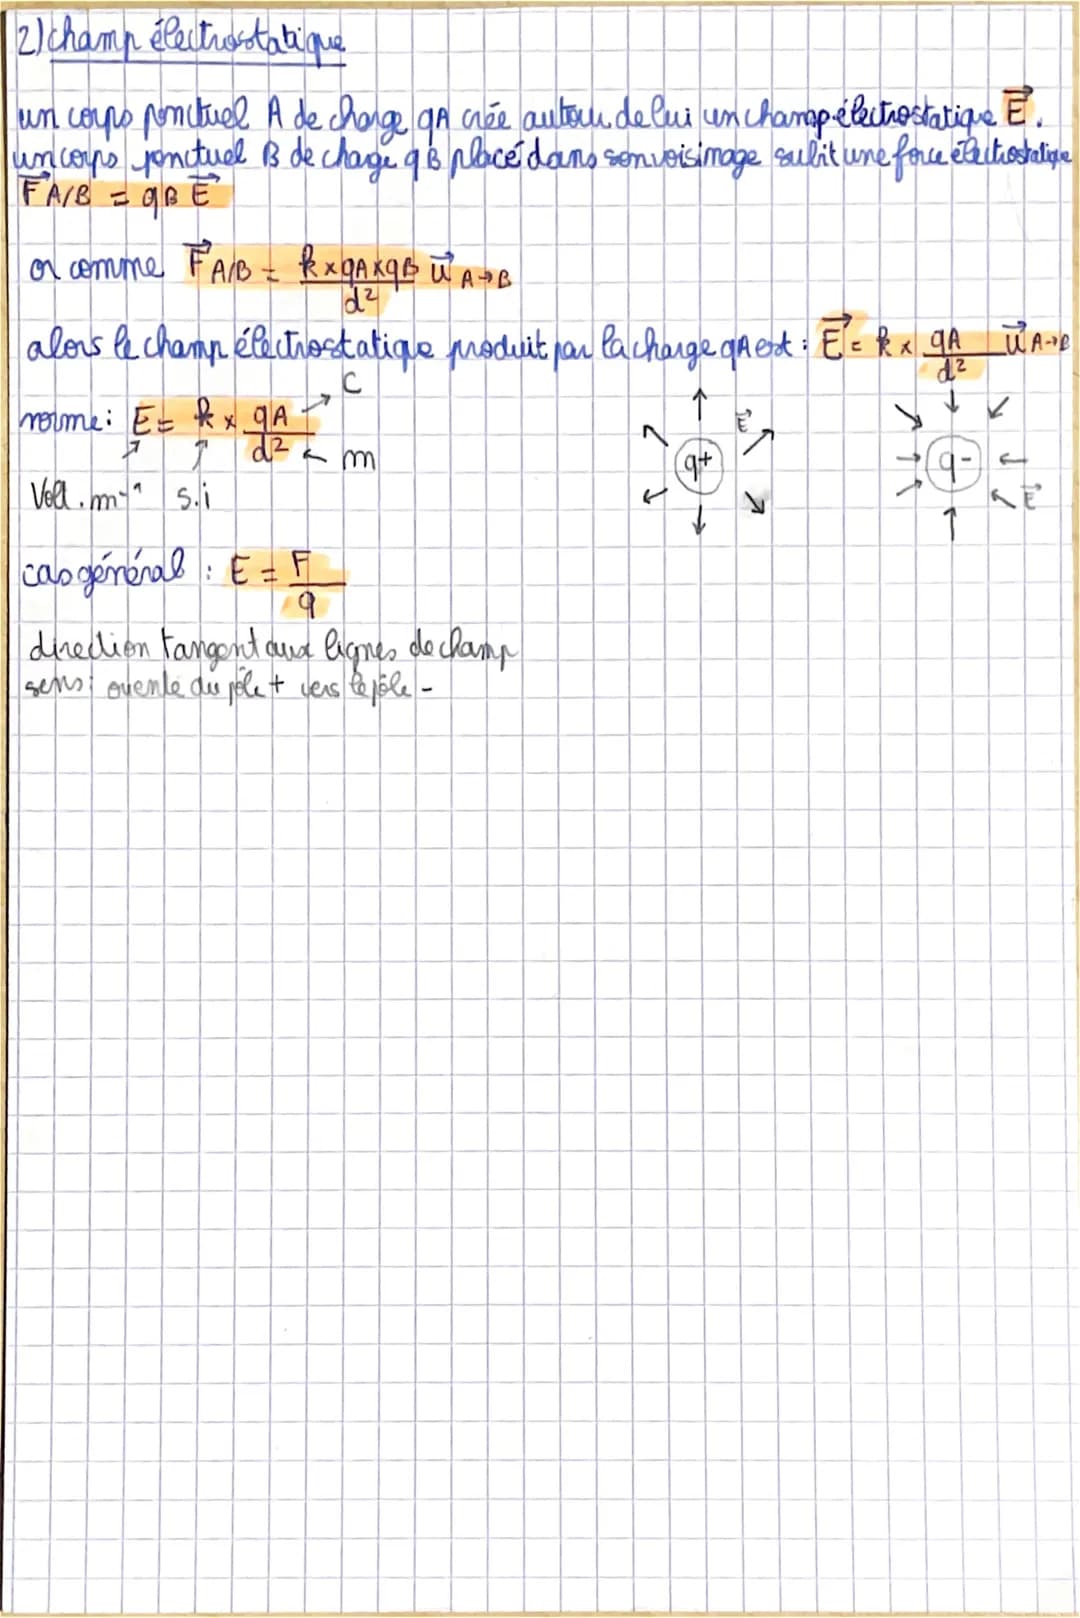 2) champ électrostatique
un corps ponctuel A de charge qA crée autour de lui un champ électrostatique E⃗.
un corps ponctuel B de charge qB placé dans son voisinage subit une force électrostatique
F⃗A/B = qB E⃗
or comme F⃗A/B = k×qA×qB/d² u⃗ A→B
alors le champ électrostatique produit par la charge qA est : E⃗ = k × qA/d² u⃗ A→B
norme : E = k × qA/d²
C
m
Volt.m⁻¹ s.i
q+ E⃗
q- E⃗
cas général : E = F/q
direction tangent aux lignes de champ
sens : du pôle + vers le pôle -